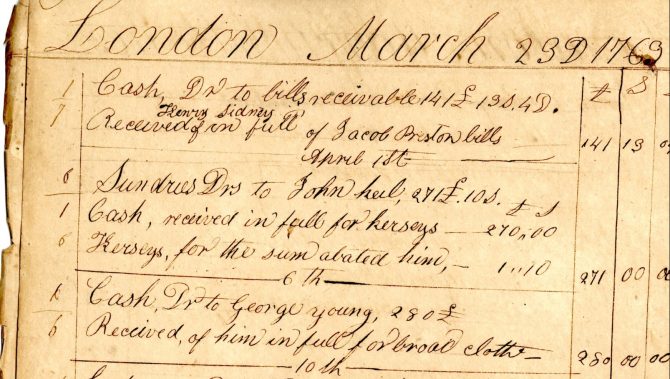 London March 23D 1763
1 Cash, Dr to bills receivable 141£ 13S. 4D. £ S
Henry Sidney
7 Received of in full of Jacob Preston bills 141 13
April 1st
6 Sundries Drs to John heil, 271£. 10S. £ S
1 Cash, received in full for kerseys — 270,,00
6 Kerseys, for the sum abated him, — 1,,10 271 00 00
6th
1 Cash, Dr to George young, 280£
6 Received, of him in full for broad cloth — 280 00 00
10th